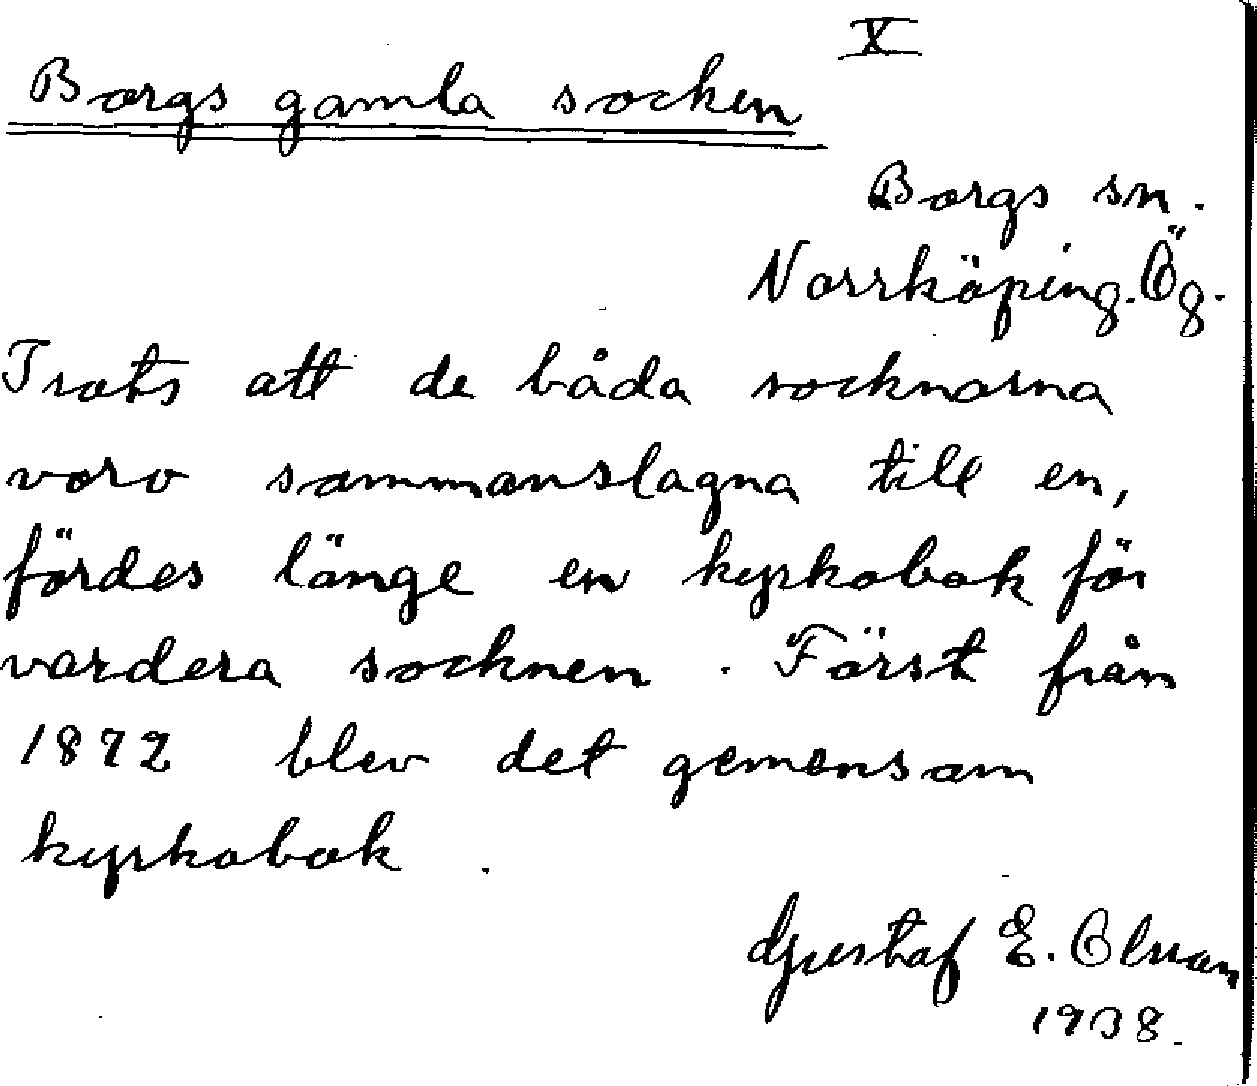 X
Borgs gamla socken
Borgs sn.
Norrköping. Ög.
Trots att de båda socknarna
voro sammanslagna till en,
fördes länge en kyrkobok för
vardera socknen. Först från
1872 blev det gemensam
kyrkobok.
Gustaf E. Olsson
1938.